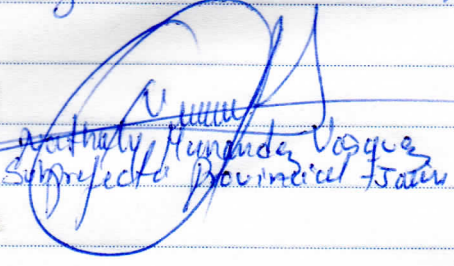 Nathaly Hernandez Vasquez
Subprefecta Provincial Jaén